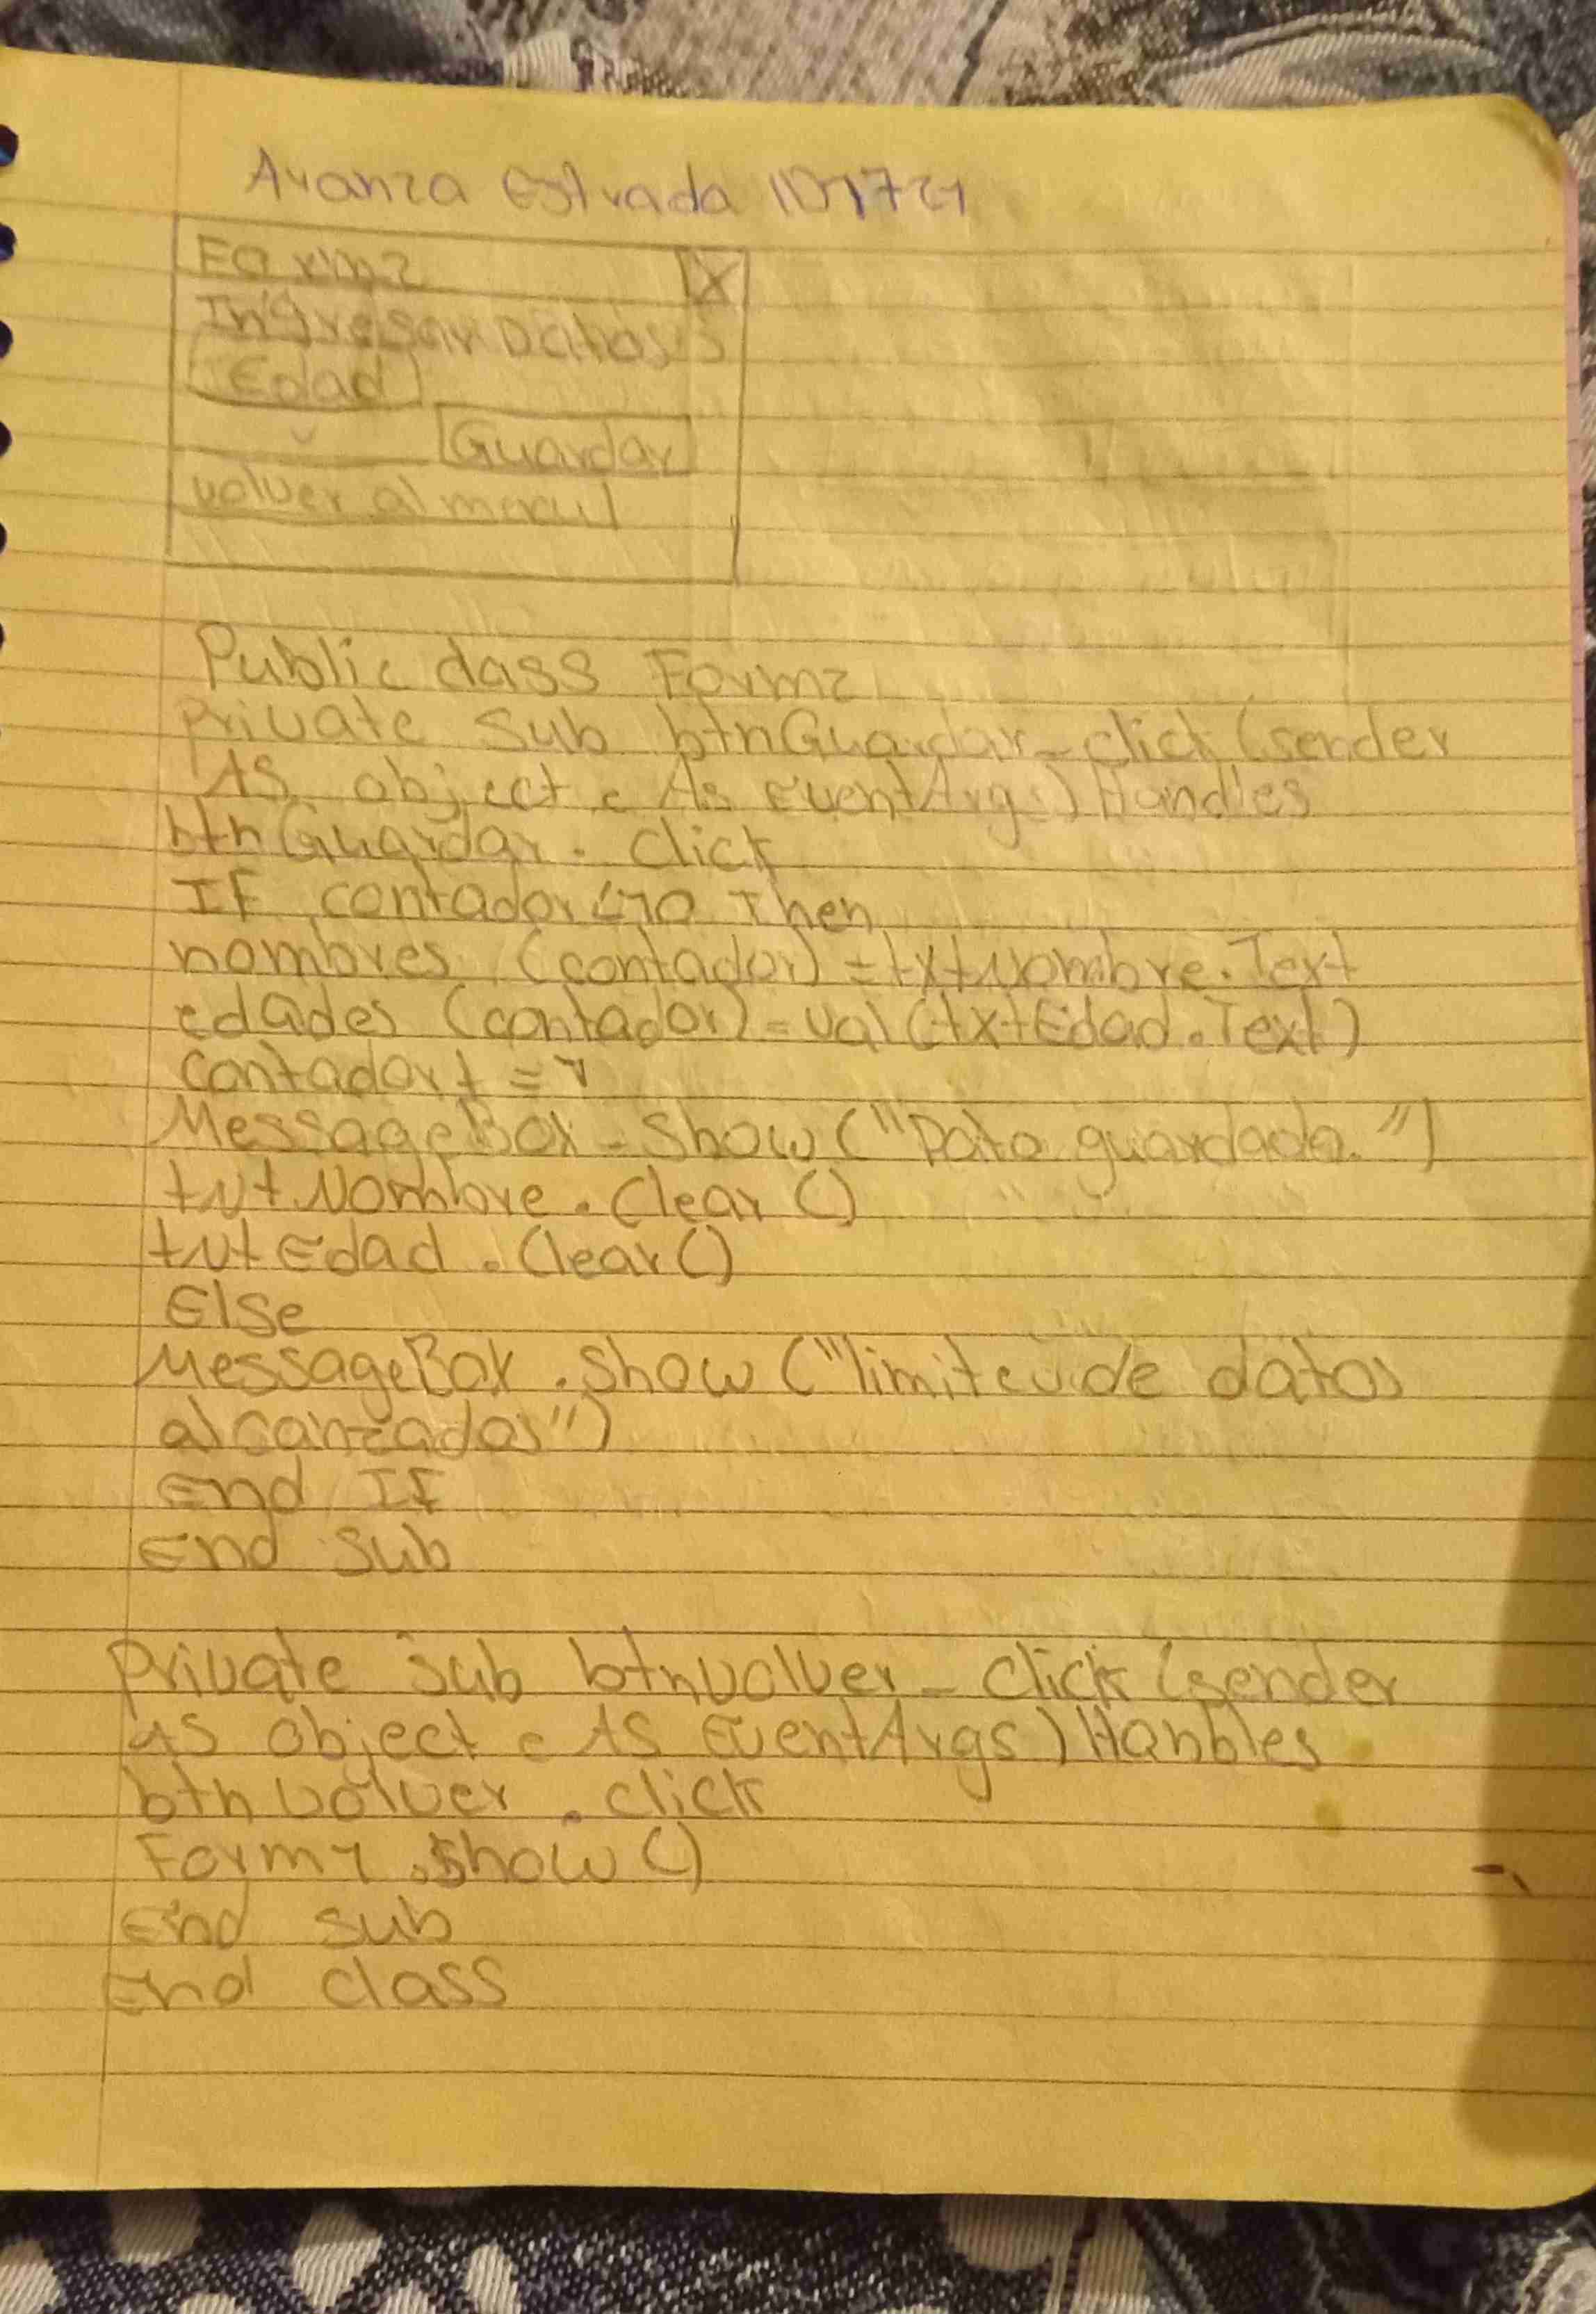 Aranza Estrada
Form2 X
Ingresar Datos
Edad
Guardar
volver al menu
Public class Form2
Private Sub btnGuardar_click (sender
As object e As EventArgs) Handles
btnGuardar. Click
If contador <10 Then
nombres (contador) = txtNombre.Text
edades (contador) = val (txtEdad.Text)
Contador + = 1
MessageBox - Show ("Dato guardado.")
txtNombre . Clear ()
txt Edad . Clear ()
Else
MessageBox . Show ("limite de datos
alcanzados")
End If
End Sub
Private Sub btnvolver _ click (sender
As object e As EventArgs) Habbles
btn volver . click
Form1 .Show ()
End sub
End class